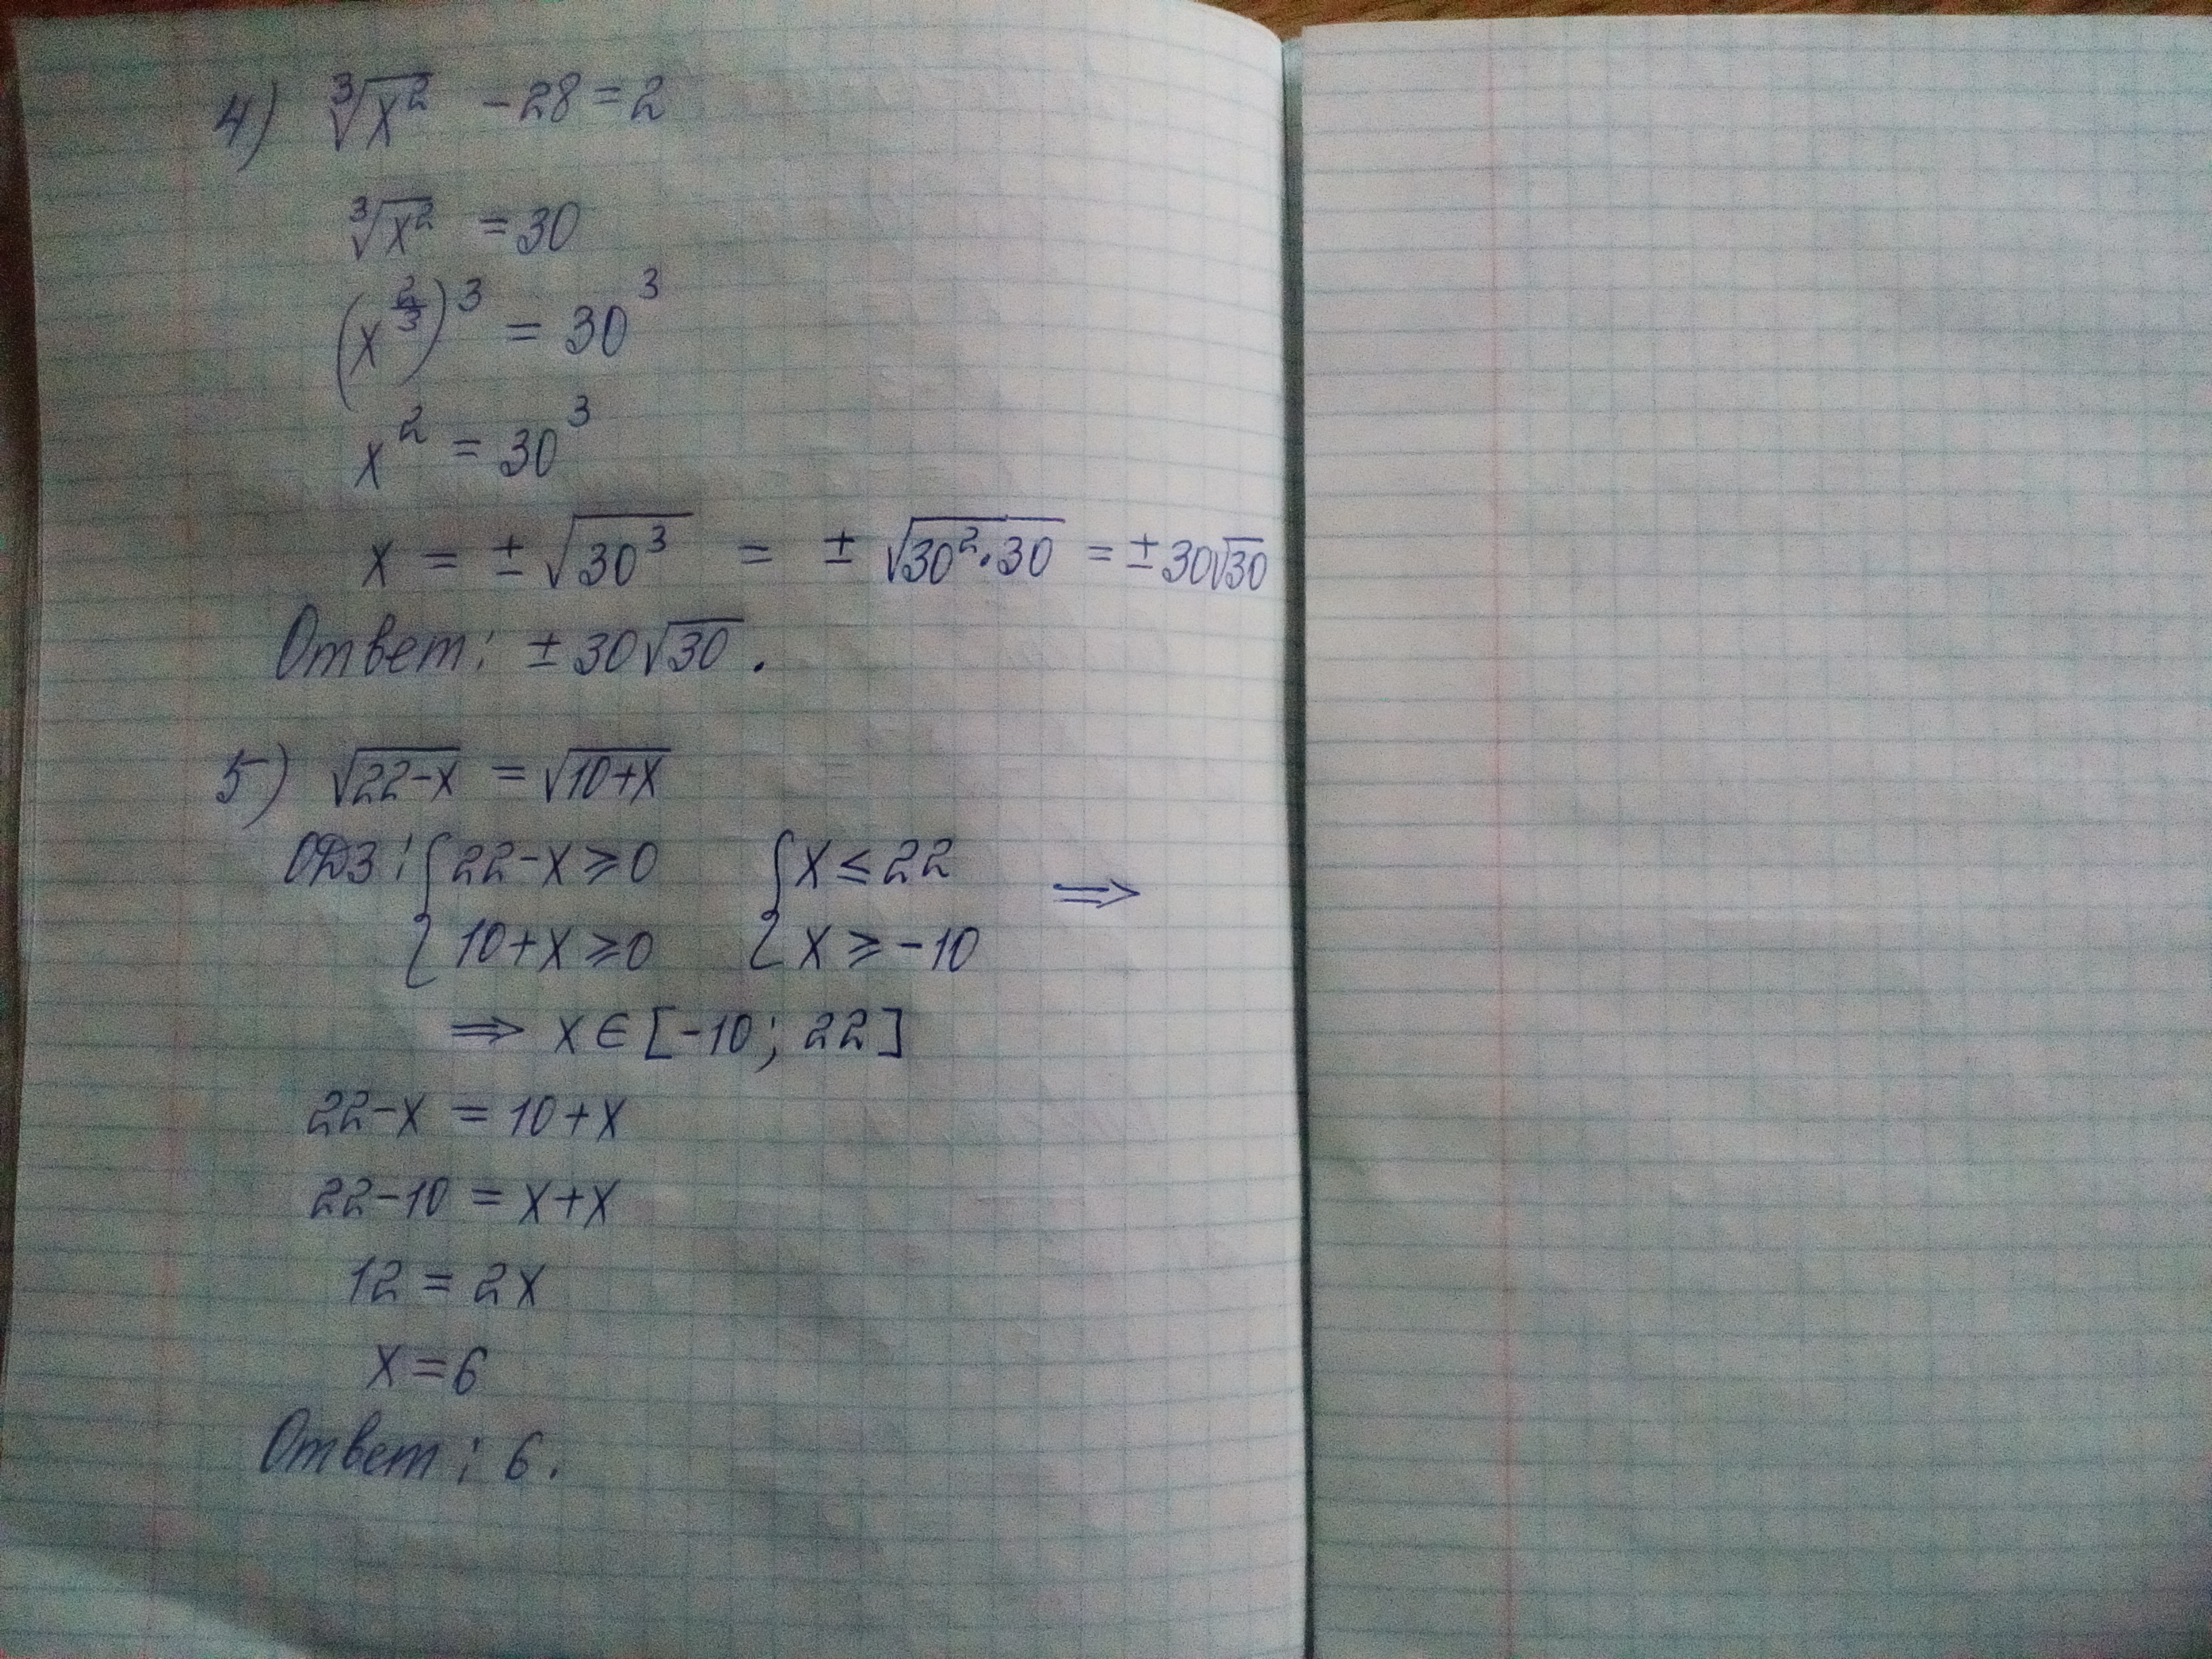 4) ∛x² - 28 = 2
∛x² = 30
(x^(2/3))³ = 30³
x² = 30³
x = ± √30³ = ± √30²·30 = ± 30√30
Ответ: ± 30√30 .
5) √22-x = √10+x
ОДЗ: { 22-x ⩾ 0 { x ≤ 22 ⟹
10+x ⩾ 0 x ⩾ -10
⟹ x ∈ [-10; 22]
22-x = 10+x
22-10 = x+x
12 = 2x
x = 6
Ответ: 6.